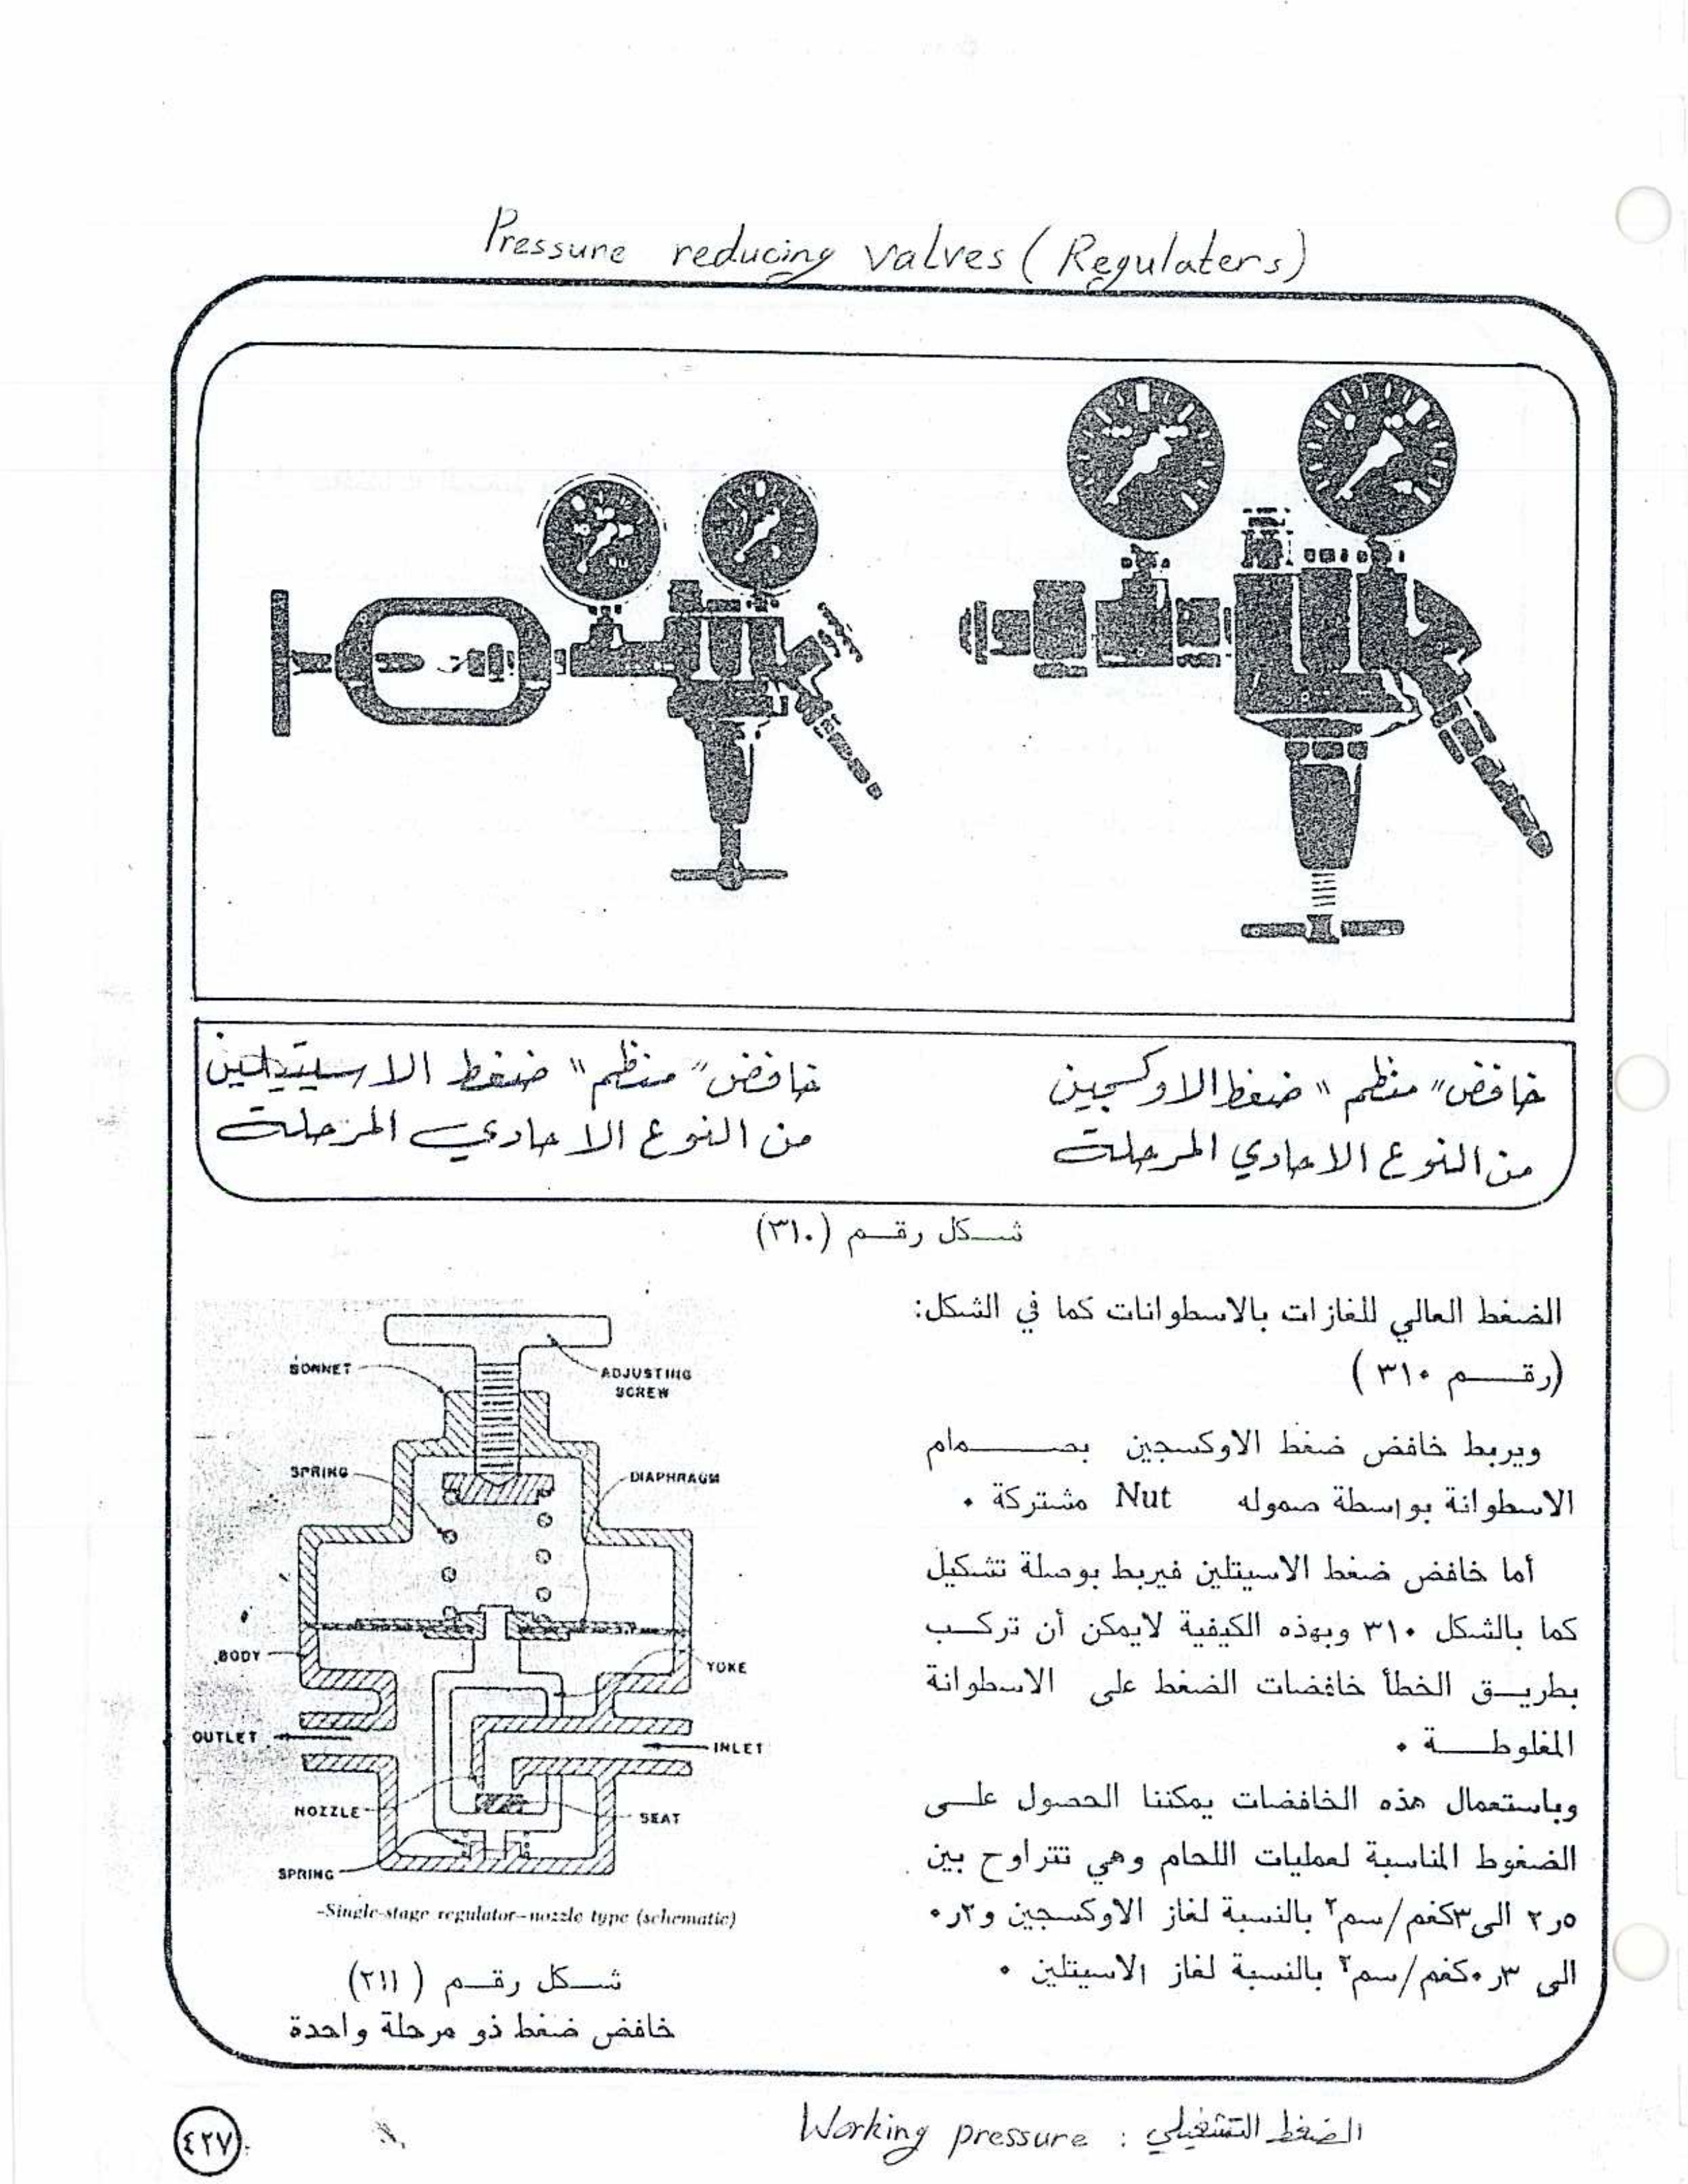 Pressure reducing valves (Regulaters)
خافض" منظم " ضغط الاوكسجين
من النوع الاحادي المرحلة
خافض" منظم " ضغط الاسيتيلين
من النوع الاحادي المرحلة
شكل رقم (٣١٠)
الضغط العالي للغازات بالاسطوانات كما في الشكل:
(رقم ٣١٠ )
ويربط خافض ضغط الاوكسجين بصمام
الاسطوانة بواسطة صموله Nut مشتركة ٠
أما خافض ضغط الاسيتلين فيربط بوصلة تشكيل
كما بالشكل ٣١٠ وبهذه الكيفية لايمكن أن تركب
بطريق الخطأ خافضات الضغط على الاسطوانة
المغلوطة ٠
وباستعمال هذه الخافضات يمكننا الحصول على
الضغوط المناسبة لعمليات اللحام وهي تتراوح بين
٥ر٢ الى٣كغم/سم٢ بالنسبة لغاز الاوكسجين و٢ر٠
الى ٣ر٠كغم/سم٢ بالنسبة لغاز الاسيتلين ٠
BONNET
ADJUSTING
SCREW
SPRING
DIAPHRAGM
BODY
YOKE
OUTLET
INLET
NOZZLE
SEAT
SPRING
-Single-stage regulator-nozzle type (schematic)
شكل رقم (٢١١)
خافض ضغط ذو مرحلة واحدة
الضغط التشغيلي : Working pressure
٤٢٧